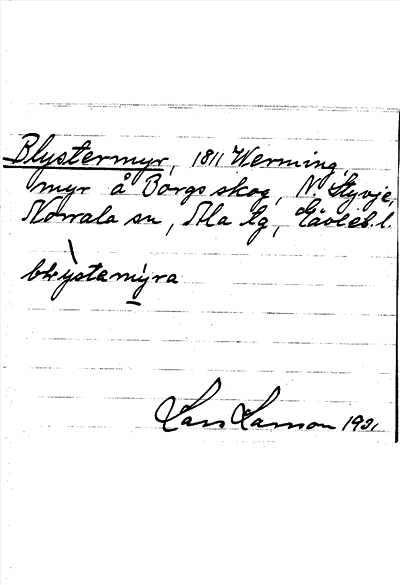 Blystermyr, 1811 Werming,
myr å Borgs skog, N. Styvje,
Norrala sn, Ala tg, Gävleb. l.
blystamyra
Lars Larsson 1931